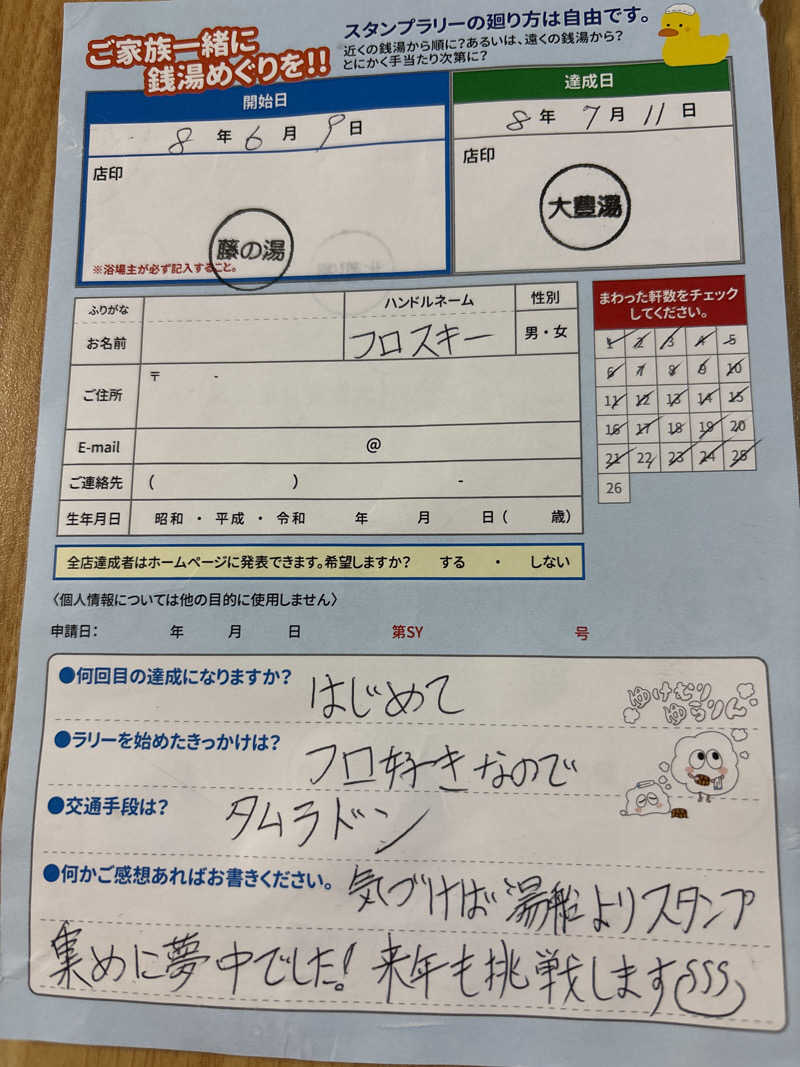 ご家族一緒に
銭湯めぐりを!!
スタンプラリーの廻り方は自由です。
近くの銭湯から順に?あるいは、遠くの銭湯から?
とにかく手当たり次第に?
開始日
8 年 6 月 9 日
店印
藤の湯
※浴場主が必ず記入すること。
達成日
8 年 7 月 11 日
店印
大豊湯
ふりがな
お名前
ハンドルネーム
フロスキー
性別
男・女
ご住所 〒 -
E-mail @
ご連絡先 ( ) -
生年月日 昭和 ・ 平成 ・ 令和 年 月 日( 歳)
まわった軒数をチェック
してください。
1 2 3 4 5
6 7 8 9 10
11 12 13 14 15
16 17 18 19 20
21 22 23 24 25
26
全店達成者はホームページに発表できます。希望しますか? する ・ しない
〈個人情報については他の目的に使用しません〉
申請日: 年 月 日 第SY 号
●何回目の達成になりますか? はじめて
ゆけむり
ゆうりん
●ラリーを始めたきっかけは? フロ好きなので
●交通手段は? タムラドン
●何かご感想あればお書きください。 気づけば湯船よりスタンプ
集めに夢中でした!来年も挑戦します